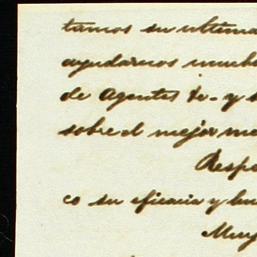 tamos su ultima
ayudarnos mucho
de Agentes &. y
sobre el mejor
Resp
co su eficacia y
Muy